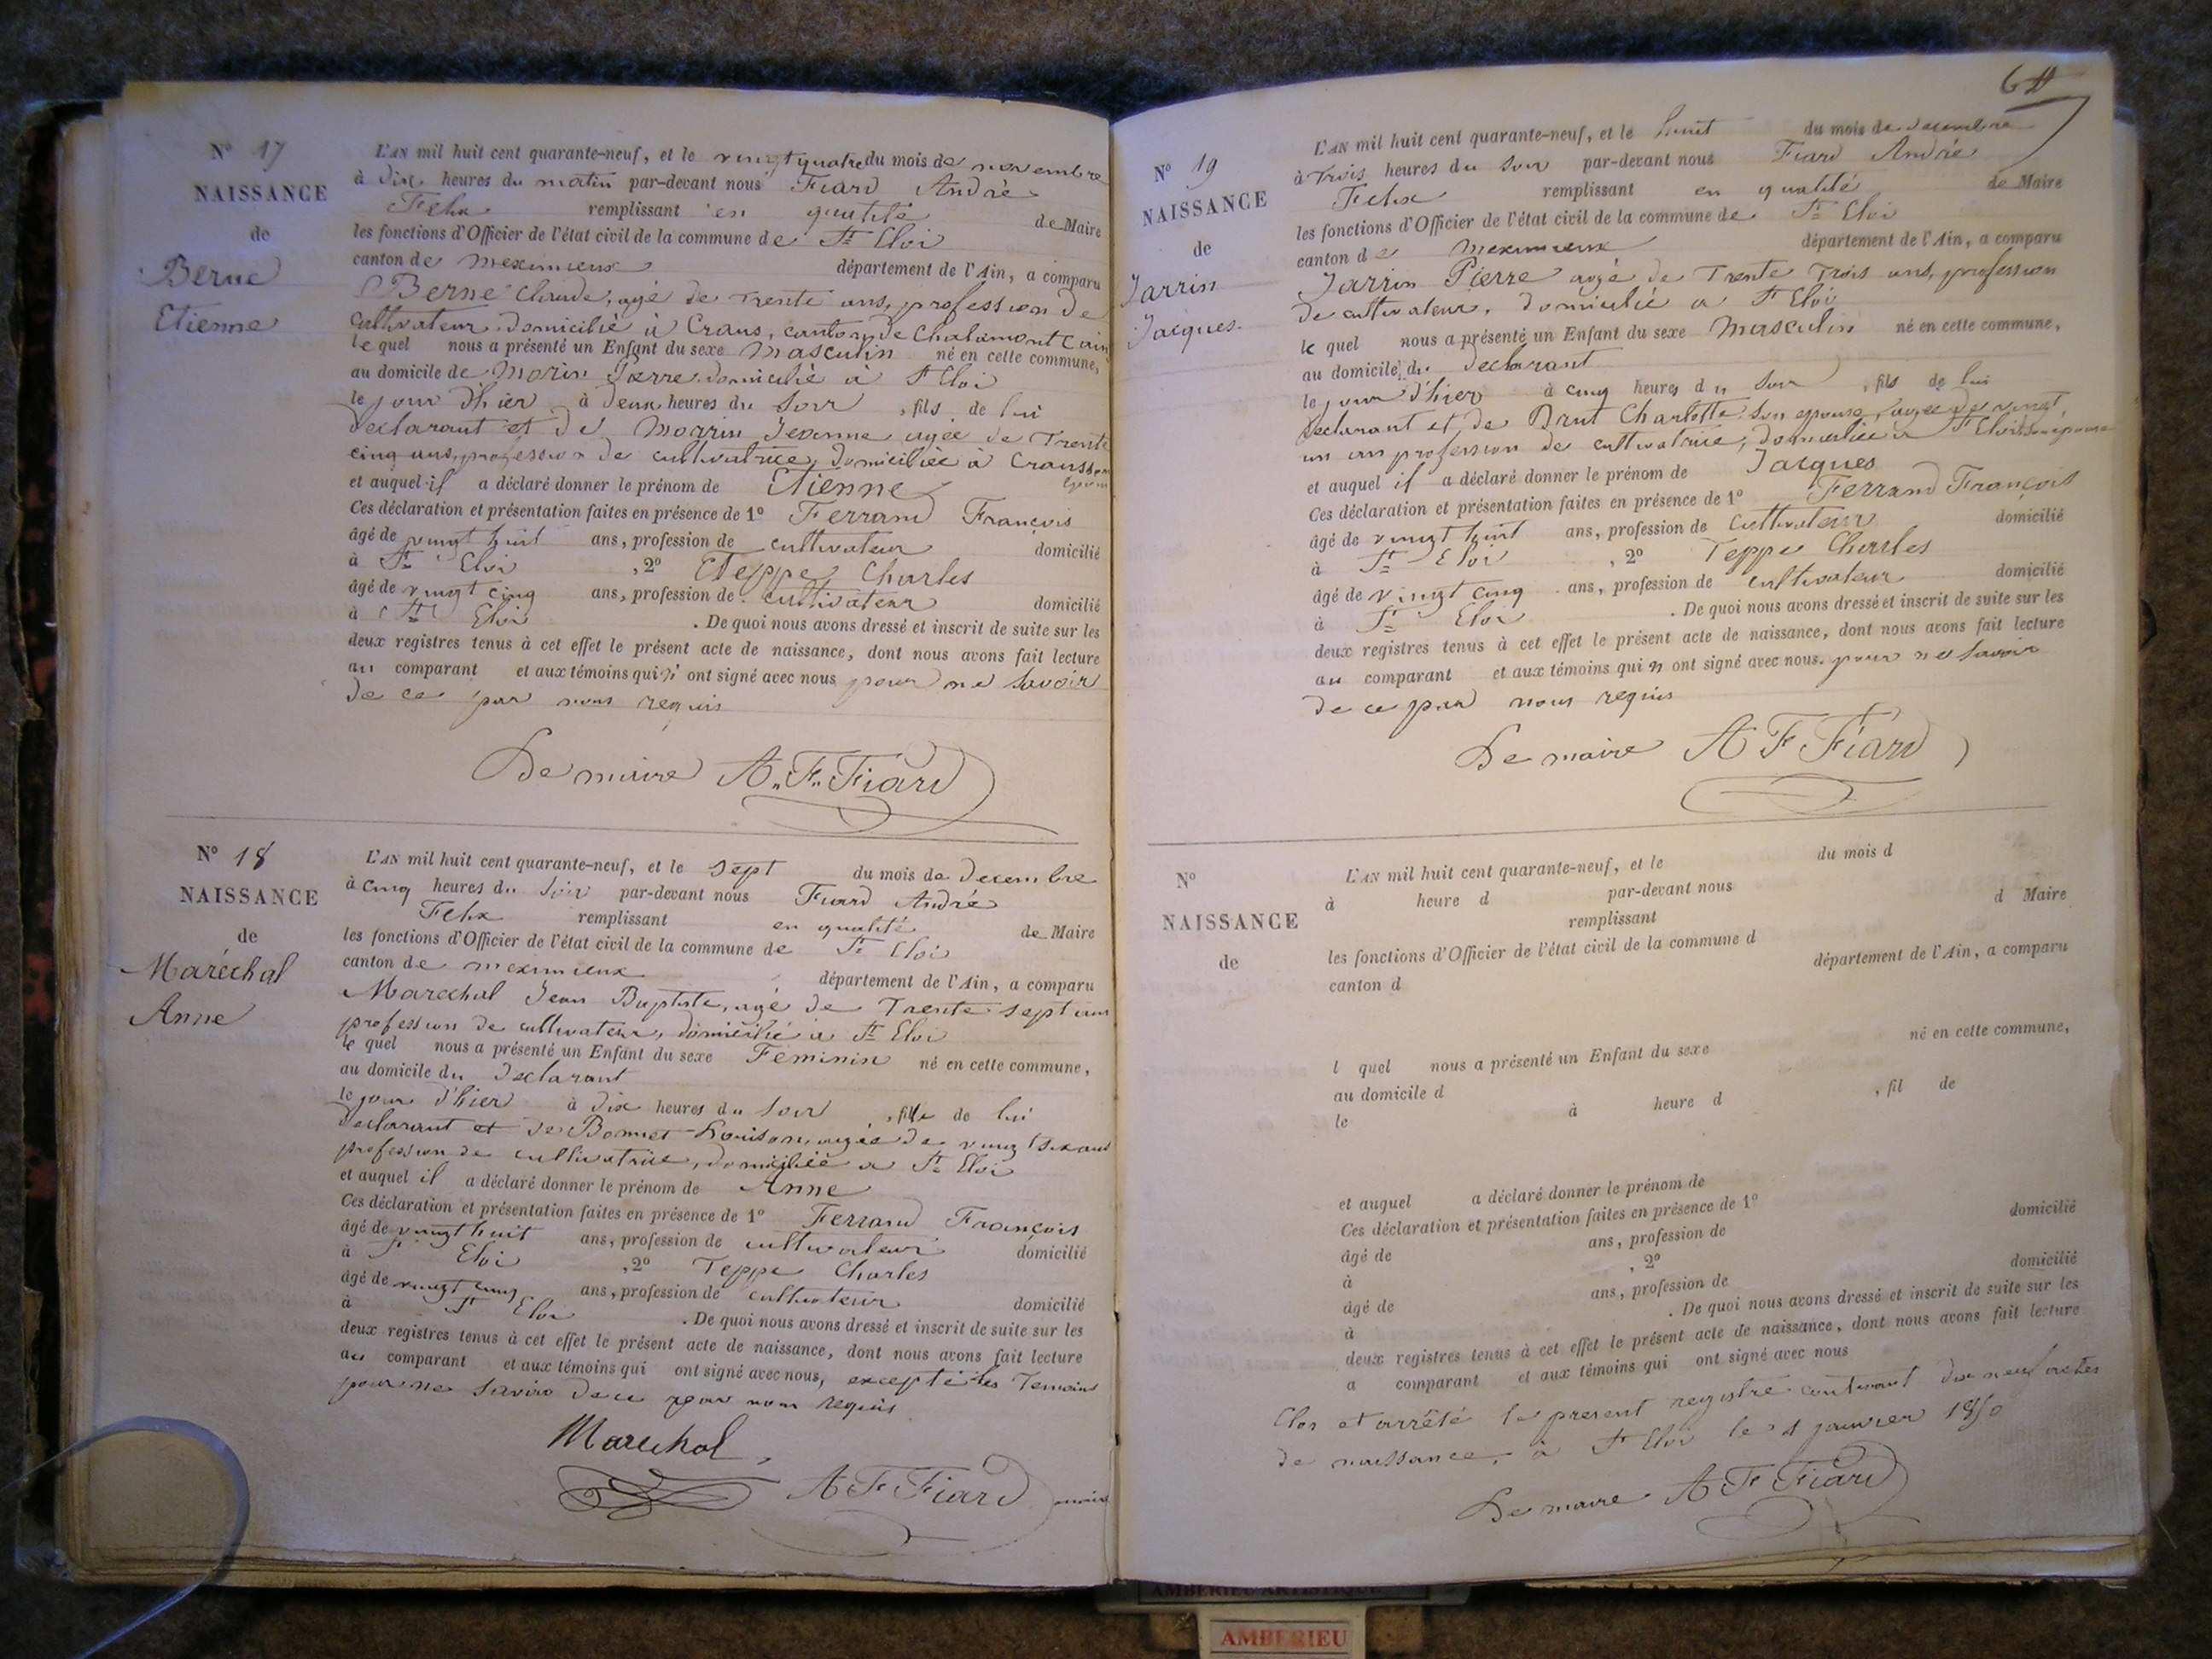 Nº 17
NAISSANCE
de
Berne
Etienne
L'AN mil huit cent quarante-neuf, et le vingt quatre du mois de novembre
à dix heures du matin par-devant nous Fiard André
Felix remplissant en qualité de Maire
les fonctions d'Officier de l'état civil de la commune de St Eloi
canton de meximieux département de l'Ain, a comparu
Berne Claude, agé de Trente ans, profession de
cultivateur domicilié à Crans, canton de Chalamont (ain
le quel nous a présenté un Enfant du sexe Masculin né en cette commune,
au domicile de Morin domicilié à St Eloi
le jour d'hier à deux heures du soir , fils de lui
declarant et de Jeanne agée de Trente
cinq ans, profession de cultivatrice, domiciliée à Crans son
epouse
et auquel il a déclaré donner le prénom de Etienne
Ces déclaration et présentation faites en présence de 1º Ferrand François
âgé de vingt huit ans, profession de cultivateur domicilié
à St Eloi , 2º Teppe Charles
âgé de vingt cinq ans, profession de cultivateur domicilié
à St Eloi . De quoi nous avons dressé et inscrit de suite sur les
deux registres tenus à cet effet le présent acte de naissance, dont nous avons fait lecture
au comparant et aux témoins qui n' ont signé avec nous pour ne savoir
de ce par nous requis
Le maire A. F. Fiard
Nº 18
NAISSANCE
de
Maréchal
Anne
L'AN mil huit cent quarante-neuf, et le sept du mois de Decembre
à cinq heures du soir par-devant nous Fiard André
Felix remplissant en qualité de Maire
les fonctions d'Officier de l'état civil de la commune de St Eloi
canton de meximieux département de l'Ain, a comparu
Marechal Jean Baptiste, agé de Trente sept ans
profession de cultivateur, domicilié a St Eloi
le quel nous a présenté un Enfant du sexe Feminin né en cette commune,
au domicile du Declarant
le jour d'hier à dix heures du soir , fille de lui
Declarant et de Bonnet Louison, agée de vingt six ans
profession de cultivatrice, domiciliée a St Eloi
et auquel il a déclaré donner le prénom de Anne
Ces déclaration et présentation faites en présence de 1º Ferrand François
âgé de vingt huit ans, profession de cultivateur domicilié
à St Eloi , 2º Teppe Charles
âgé de vingt cinq ans, profession de cultivateur domicilié
à St Eloi . De quoi nous avons dressé et inscrit de suite sur les
deux registres tenus à cet effet le présent acte de naissance, dont nous avons fait lecture
au comparant et aux témoins qui ont signé avec nous, excepté les Temoins
pour ne savoir de ce par nous requis
Marechal
A F Fiard maire
64
Nº 19
NAISSANCE
de
Jarrin
Jacques
L'AN mil huit cent quarante-neuf, et le huit du mois de decembre
à Trois heures du soir par-devant nous Fiard André
Felix remplissant en qualité de Maire
les fonctions d'Officier de l'état civil de la commune de St Eloi
canton de meximieux département de l'Ain, a comparu
Jarrin Pierre agé de Trente Trois ans, profession
de cultivateur, domicilié a St Eloi
le quel nous a présenté un Enfant du sexe Masculin né en cette commune,
au domicile du Declarant
le jour d'hier à cinq heures du soir , fils de lui
Declarant et de Charlotte son epouse, agée de vingt
un an profession de cultivatrice, domiciliée a St Eloi son epouse
et auquel il a déclaré donner le prénom de Jacques
Ces déclaration et présentation faites en présence de 1º Ferrand François
âgé de vingt huit ans, profession de cultivateur domicilié
à St Eloi , 2º Teppe Charles
âgé de vingt cinq ans, profession de cultivateur domicilié
à St Eloi . De quoi nous avons dressé et inscrit de suite sur les
deux registres tenus à cet effet le présent acte de naissance, dont nous avons fait lecture
au comparant et aux témoins qui n ont signé avec nous. pour ne savoir
de ce par nous requis
Le maire A F Fiard
Nº
NAISSANCE
de
L'AN mil huit cent quarante-neuf, et le du mois d
à heure d par-devant nous
remplissant d Maire
les fonctions d'Officier de l'état civil de la commune d
canton d département de l'Ain, a comparu
l quel nous a présenté un Enfant du sexe né en cette commune,
au domicile d
le à heure d , fil de
et auquel a déclaré donner le prénom de
Ces déclaration et présentation faites en présence de 1º
âgé de ans, profession de domicilié
à , 2º
âgé de ans, profession de domicilié
à . De quoi nous avons dressé et inscrit de suite sur les
deux registres tenus à cet effet le présent acte de naissance, dont nous avons fait lecture
a comparant et aux témoins qui ont signé avec nous
Clos et arrêté le present registre contenant dix neuf actes
de naissance, à St Eloi le 1 janvier 1850
Le maire A F Fiard
AMBERIEU ARTISTIQUE
AMBERIEU